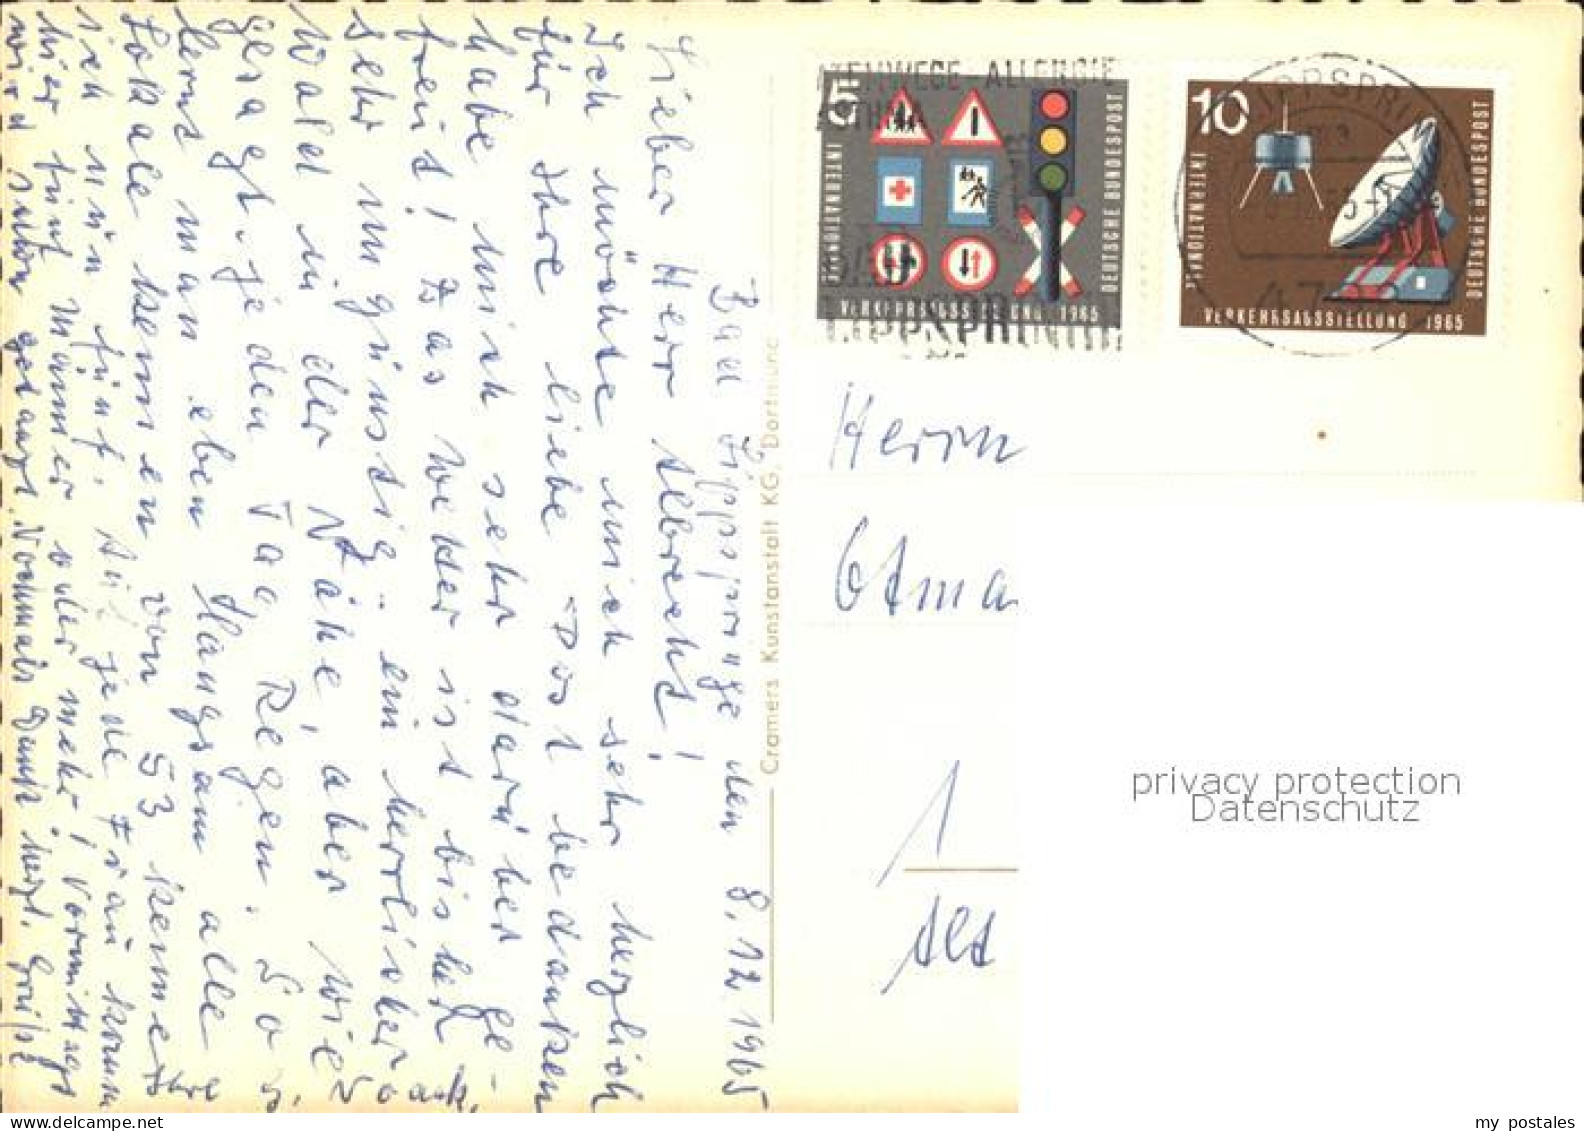 Bad Lippspringe den 8.12.1965
Lieber Herr Albrecht!
Ich möchte mich sehr herzlich
für Ihre liebe Post bedanken
habe mich sehr darüber ge-
freut! Das Wetter ist bisher
sehr ungünstig, ein herrlicher
Wald in der Nähe, aber wie
gesagt, jeden Tag Regen. So
lernt man eben langsam alle
Lokale kennen von 53 kenne
ich nun fünf. Auf jede Frau komm
hier fünf Männer oder mehr! Vormittags
wird schon getanzt. Nochmals Dank herzl. Grüße
Cramers Kunstanstalt KG. Dortmund
ATEMWEGE ALLERGIE
ASTHMA
BAD
LIPPSPRINGE
5
INTERNATIONALE
VERKEHRSAUSSTELLUNG 1965
DEUTSCHE BUNDESPOST
10
INTERNATIONALE
VERKEHRSAUSSTELLUNG 1965
DEUTSCHE BUNDESPOST
LIPPSPRI
Herrn
Otma
1
privacy protection
Datenschutz
my postales